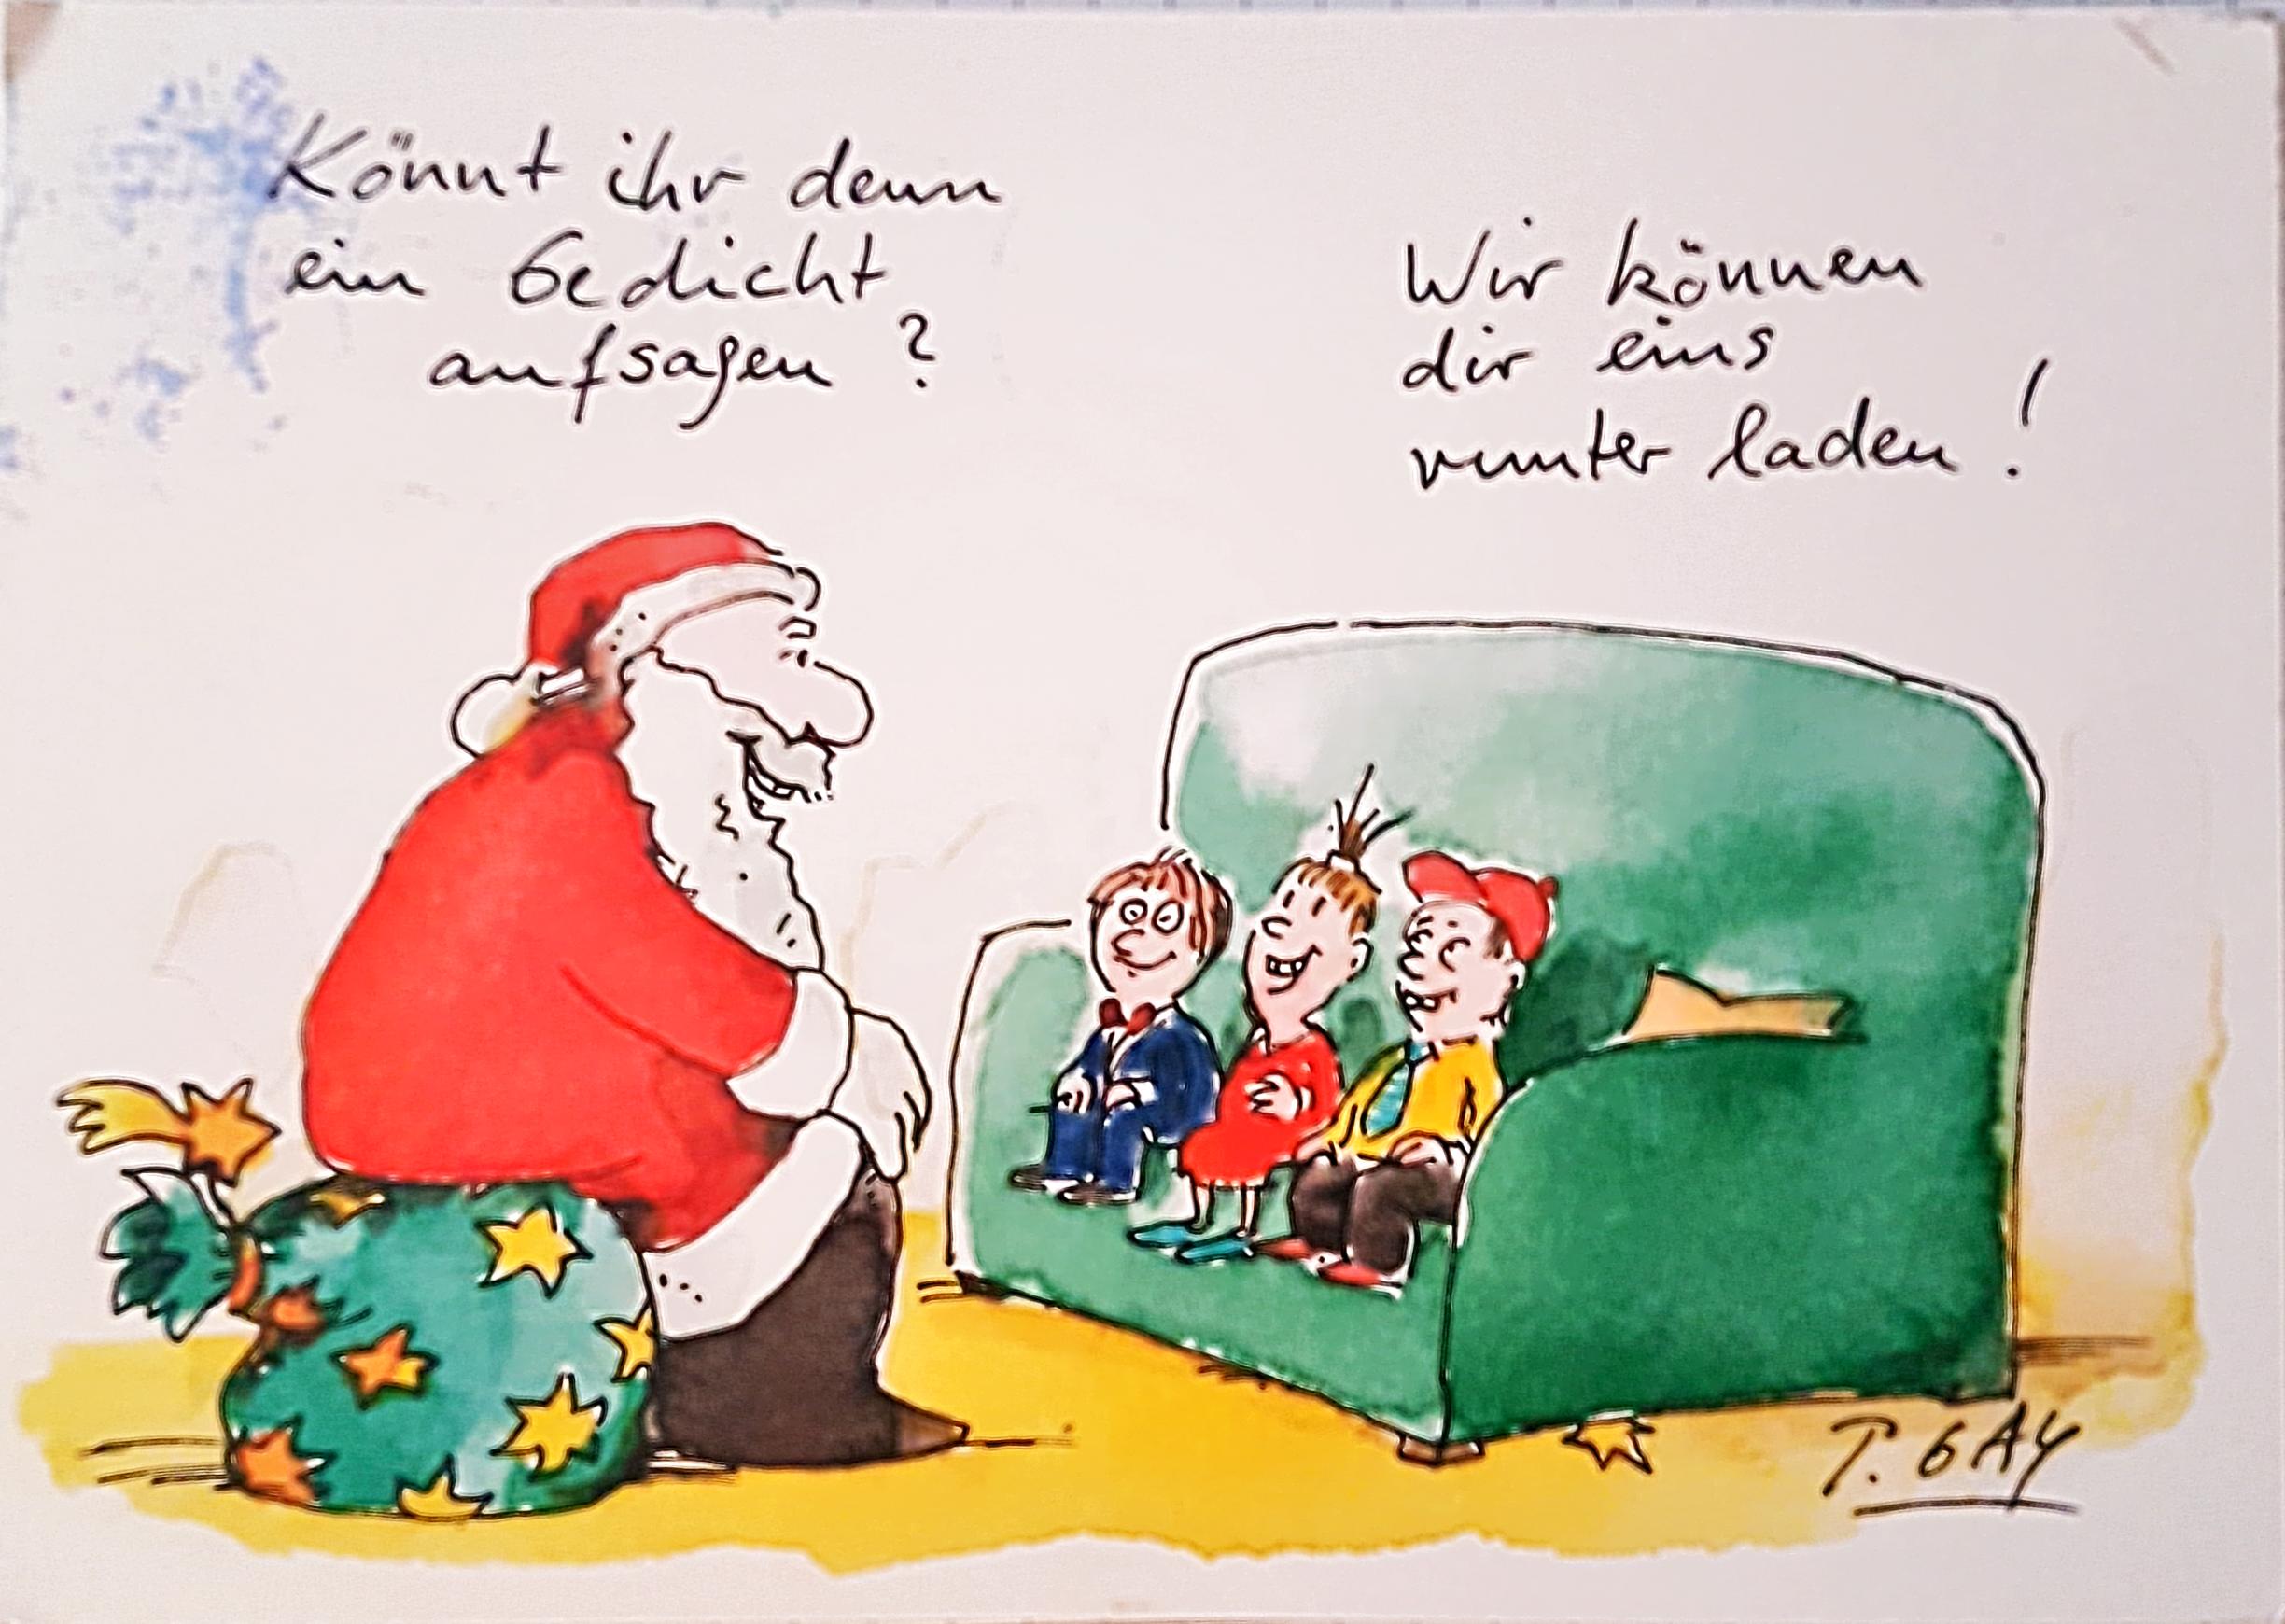 Könnt ihr denn
ein Gedicht
aufsagen?
Wir können
dir eins
runter laden!
P. GAY